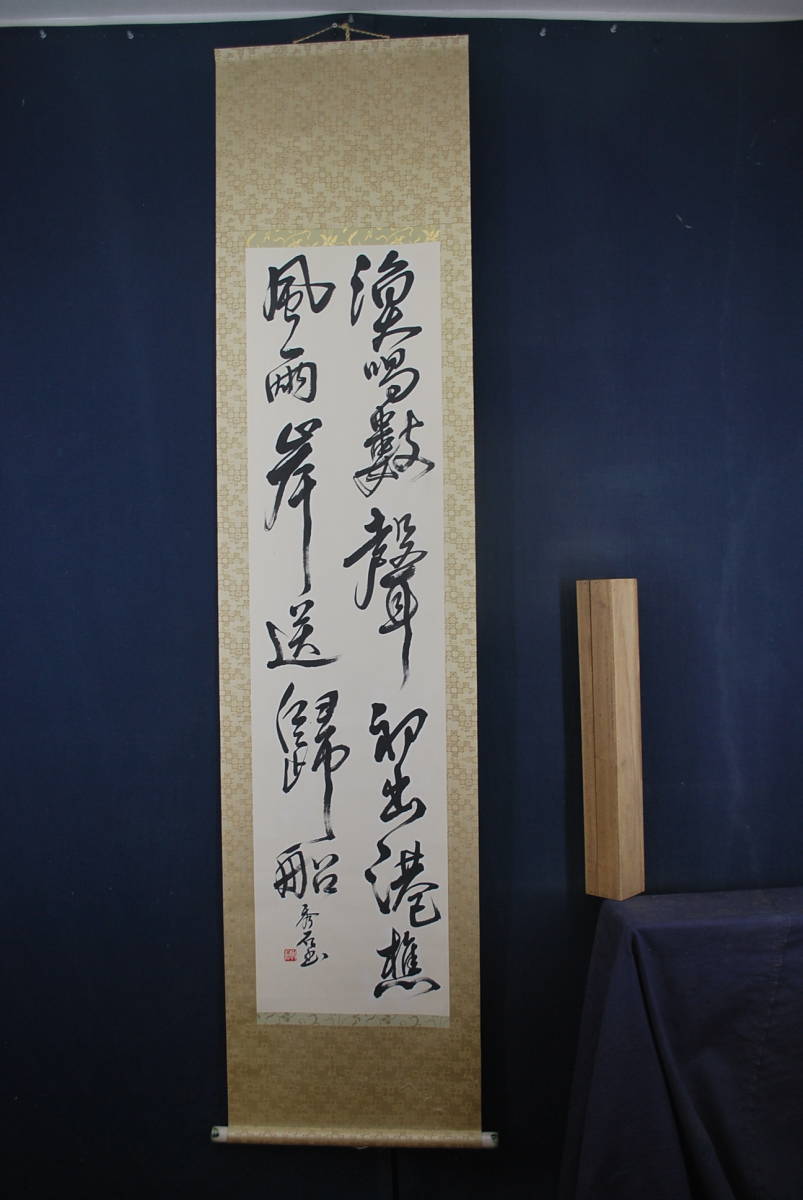 漁唱數聲初出港樵
風雨岸送歸船
秀石書